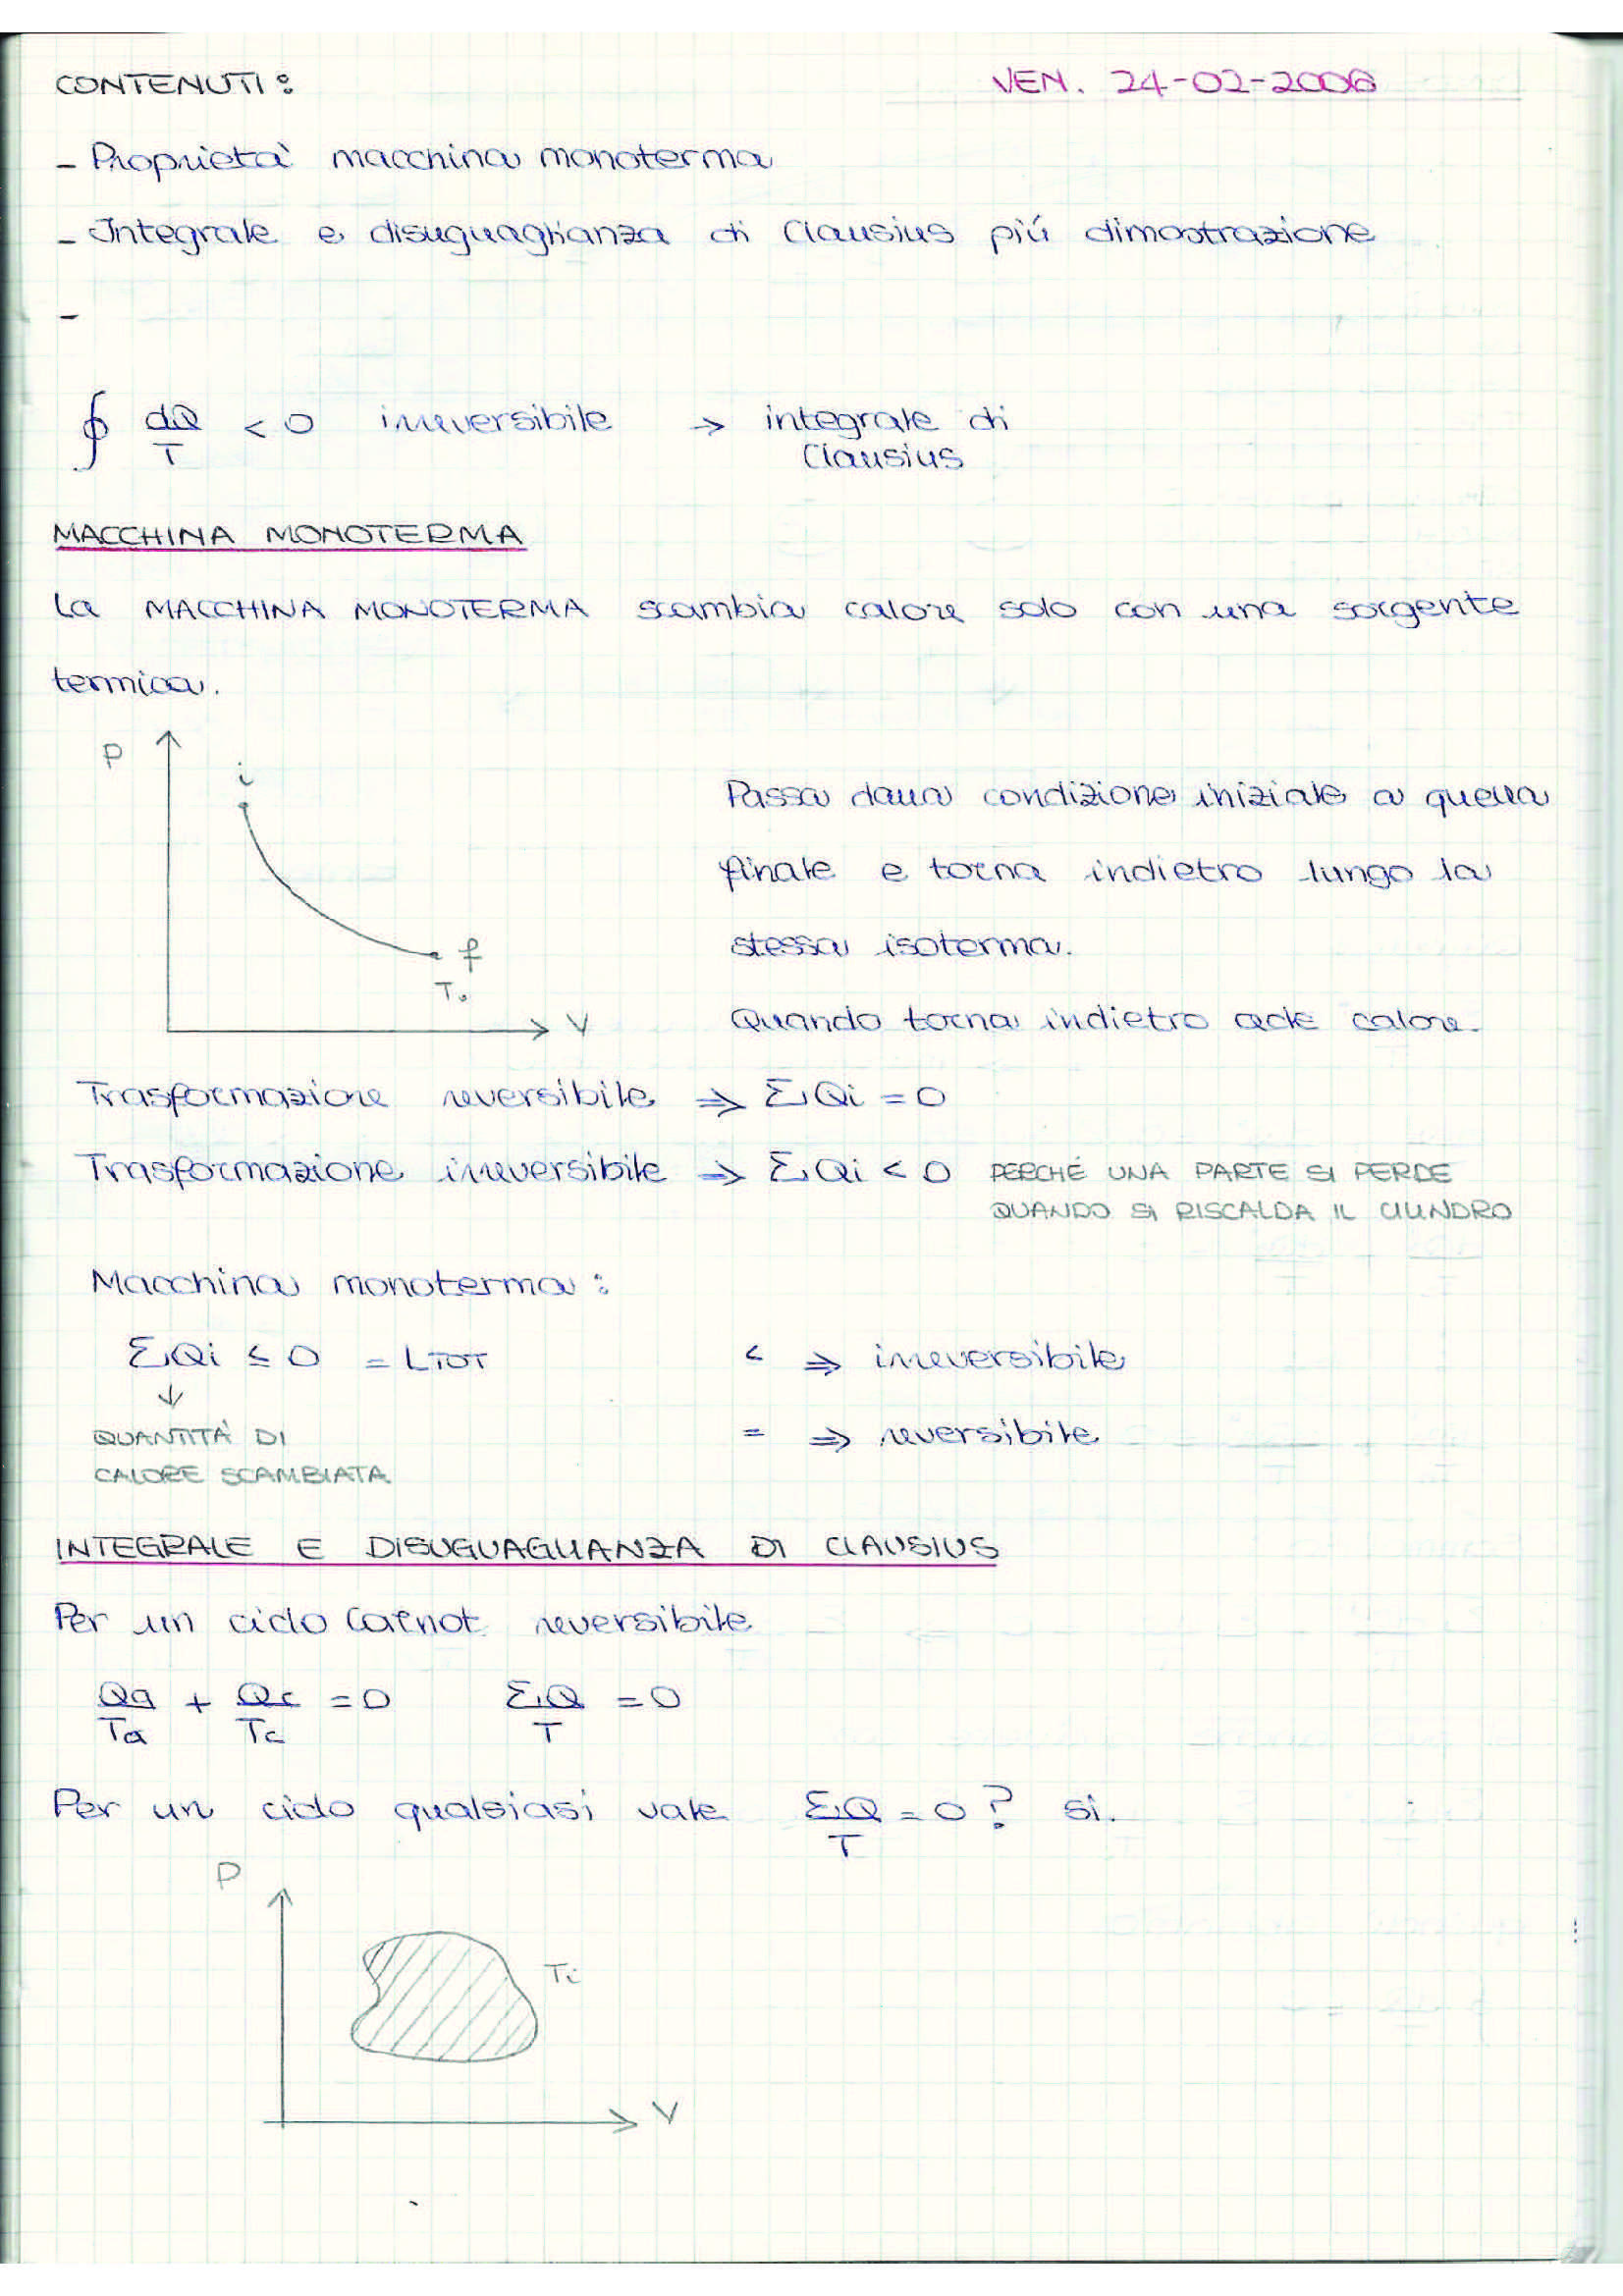 CONTENUTI:
VEN. 24-02-2006
- Proprietà macchina monoterma
- Integrale e disuguaglianza di Clausius piú dimostrazione
-
∮ dQ/T < 0 irreversibile → integrale di
Clausius
MACCHINA MONOTERMA
La MACCHINA MONOTERMA scambia calore solo con una sorgente
termica.
P
i
f
T₀
V
Passa dalla condizione iniziale a quella
finale e torna indietro lungo la
stessa isoterma.
Quando torna indietro cede calore.
Trasformazione reversibile ⇒ ΣQi = 0
Trasformazione irreversibile ⇒ ΣQi < 0 PERCHÉ UNA PARTE SI PERDE
QUANDO SI RISCALDA IL CILINDRO
Macchina monoterma:
ΣQi ≤ 0 = LTOT < ⇒ irreversibile
↓
QUANTITÀ DI = ⇒ reversibile
CALORE SCAMBIATA
INTEGRALE E DISUGUAGLIANZA DI CLAUSIUS
Per un ciclo Carnot reversibile
Qa/Ta + Qc/Tc = 0 ΣQ/T = 0
Per un ciclo qualsiasi vale ΣQ/T = 0? si.
P
Ti
V